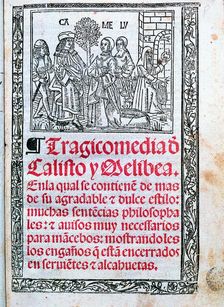 CA ME LU
¶ Tragicomedia d̄
Calisto y Melibea.
Enla qual se contienē de mas
de su agradable ⁊ dulce estilo:
muchas sentēcias philosopha
les: ⁊ auisos muy necessarios
para mācebos: mostrandoles
los engaños q̄ estā encerrados
en seruiētes ⁊ alcahuetas.